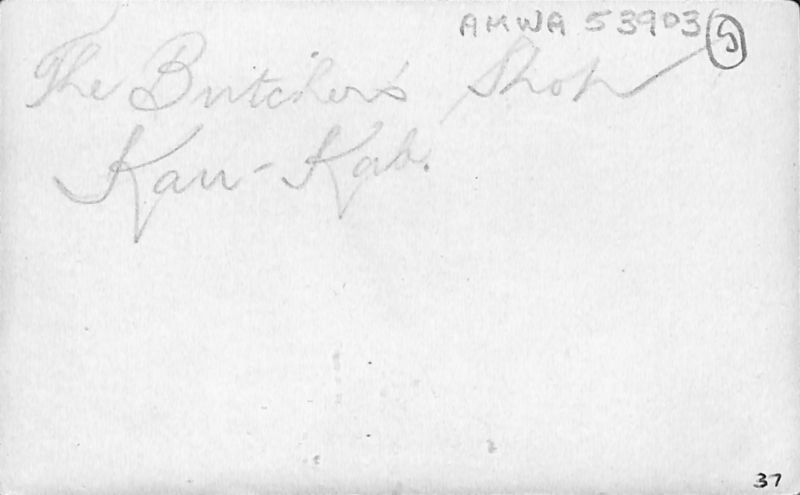 AMWA 53903
The Butcher's Shop
Kau-Kab.
37